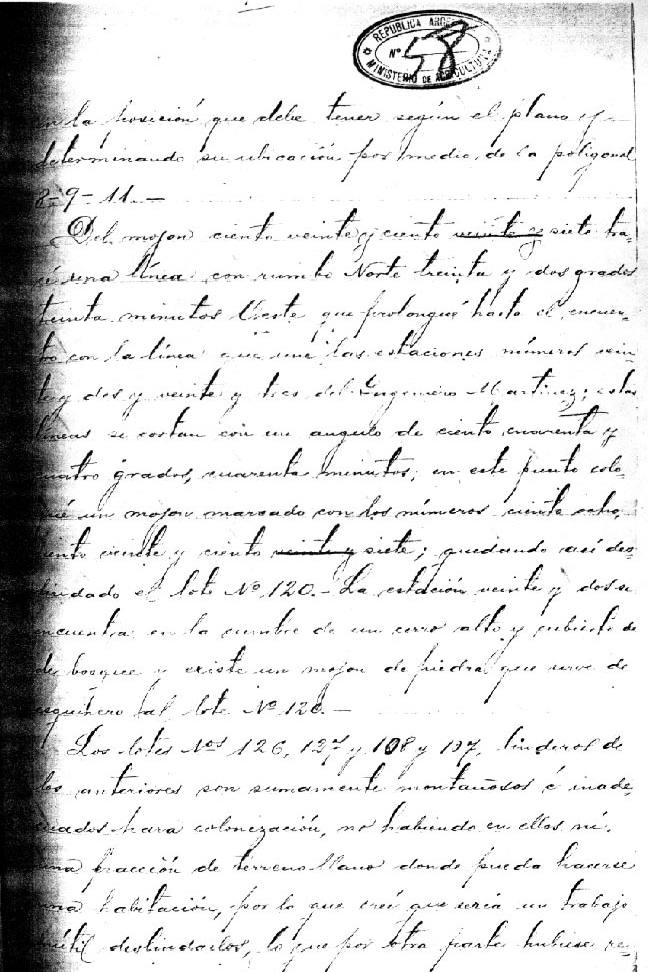 REPUBLICA ARGE
Nº 58
MINISTERIO DE AGRICULTURA
n la posición que debe tener según el plano y
determinando su ubicación por medio de la poligonal
8-9-11.-
Del mojon ciento veinte y ciento veinte y siete tra-
cé una línea con rumbo Norte treinta y dos grados
treinta minutos Oeste que prolongué hasta el encuen-
tro con la línea que une las estaciones números vein
te y dos y veinte y tres del Ingeniero Martinez; estas
líneas se cortan con un angulo de ciento cuarenta y
cuatro grados, cuarenta minutos; en este punto colo-
qué un mojon marcado con los números ciento ocho,
ciento veinte y ciento veinte y siete; quedando así des-
lindado el lote Nº 120.- La estación veinte y dos se
encuentra en la cumbre de un cerro alto y cubierto de
de bosque y existe un mojon de piedra que sirve de
esquinero al lote Nº 120.-
Los lotes Nos 126, 127 y 108 y 107, linderos de
los anteriores son sumamente montañosos é inade,
cuados para colonización, no habiendo en ellos ni,
una fracción de terreno llano donde pueda hacerse
una habitación, por lo que creí que sería un trabajo
inútil deslindarlos, lo que por otra parte hubiese re-